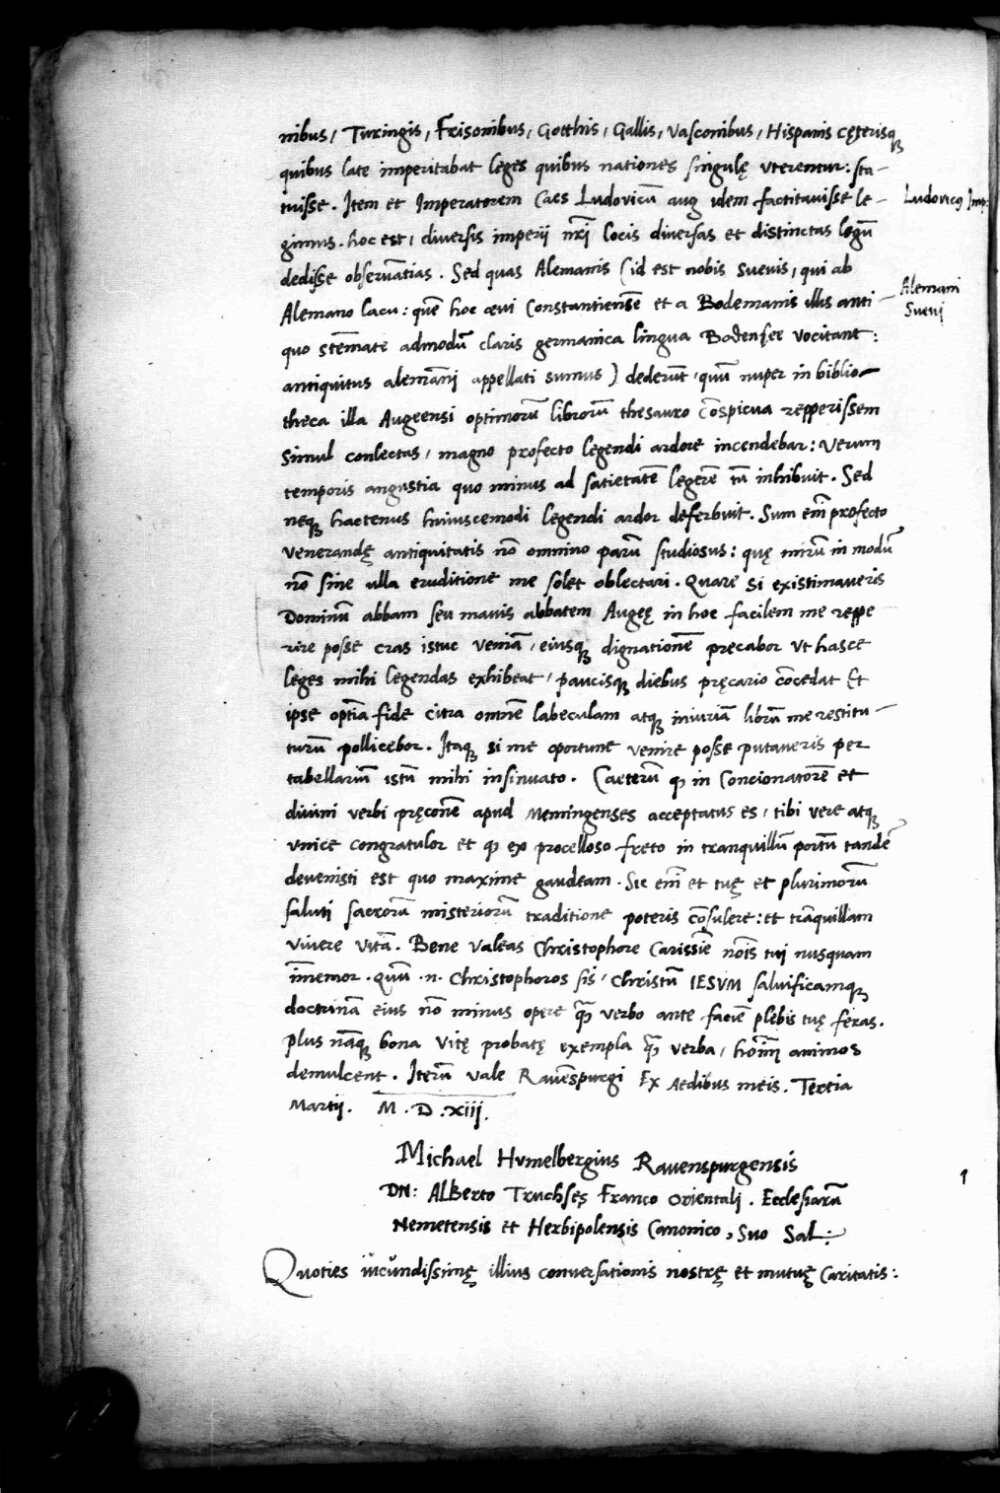 nibus, Turingis, Frisonibus, Gotthis, Gallis, Vasconibus, Hispanis cęterisq́₃
quibus late imperitabat leges quibus nationes singulę vterentur: sta-
tuisse. Item et Imperatorem Caes Ludouicū aug idem factitauisse le-
Ludouicꝰ Imp:
gimus. hoc est, diuersis imperii nr̄i locis diuersas et distinctas legū
dedisse obseruātias. Sed quas Alemanis (id est nobis Sueuis, qui ab
Alemano lacu: quē hoc æui Constantiensē et a Bodemanis illis anti-
Alemani
Sueuj
quo stēmate admodū claris germanica lingua Bodensee vocitant:
antiquitus alemānj appellati sumus) dederūt, quū nuper in biblio-
theca illa Augeensi optimorū librorū thesauro cōspicua repperissem
simul conlectas, magno profecto legendi ardore incendebar: Verum
temporis angustia quo minus ad satietatē legerē tū inhibuit. Sed
neqꝫ hactenus huiuscemodi legendi ardor deferbuit. Sum em̄ profecto
venerandę antiquitatis nō omnino parū studiosus: quę mirū in modū
nō sine ulla eruditione me solet oblectari. Quare si existimaueris
Dominū abbam seu mauis abbatem Augeę in hoc facilem me reppe
rire posse cras istuc veniā, eiusqꝫ dignationē precabor vt hasce
leges mihi legendas exhibeat, paucisqꝫ diebus pręcario cōcedat Et
ipse optīa fide citra omnē labeculam atqꝫ iniuriā librū me restitu-
turū pollicebor. Itaqꝫ si me oportune venire posse putaueris per
tabellariū istū mihi insinuato. Caeterū ꝙ in Concionatorē et
diuini verbi pręconē apud Memingenses acceptatus es, tibi vere atqꝫ
vnice congratulor et ꝙ ex procelloso freto in tranquillū portū tandē
deuenisti est quo maxime gaudeam. Sic em̄ et tuę et plurimorū
saluti sacrorū misteriorū traditione poteris cōsulere: et trāquillam
viuere vitā. Bene valeas Christophore Carissīe nōis tuj nusquam
īmemor. Quū .n. Christophoros sis, Christū IESVM saluificamqꝫ
doctrinā eius nō minus opere ꝙ̄ verbo ante faciē plebis tuę feras.
Plus nāqꝫ bona vitę probatę exempla ꝙ̄ verba, hoīm animos
demulcent. Iterū vale Rauēspurgi Ex Aedibus meis. Tertia
Martij. M. D. xiij.
Michael Hvmelbergius Rauenspurgensis
DN: Alberto Truchses Franco Orientalj. Ecclesiarū
Nemetensis et Herbipolensis Canonico, Suo Sal:
Quoties iucundissimę illius conuersationis nostrę et mutuę caritatis: